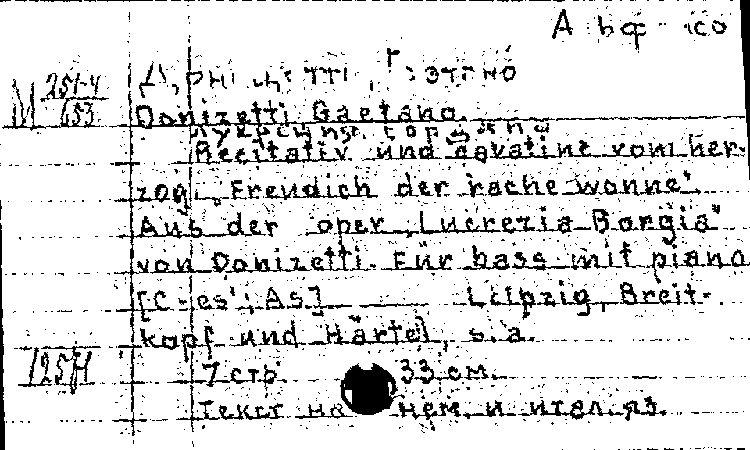 М 251-4
653
Доницетти, Гаэтано
Donizetti Gaetano.
Лукреция Борджиа
Recitativ und cavatine vom her-
zog: „Freudich der rache wonne“.
Aus der oper „Lucrezia Borgia“
von Donizetti. Für bass mit piano
[c-es'; As] Leipzig, Breit-
kopf und Härtel, s. a.
7 стр. 33 см.
Текст на нем. и итал. яз.